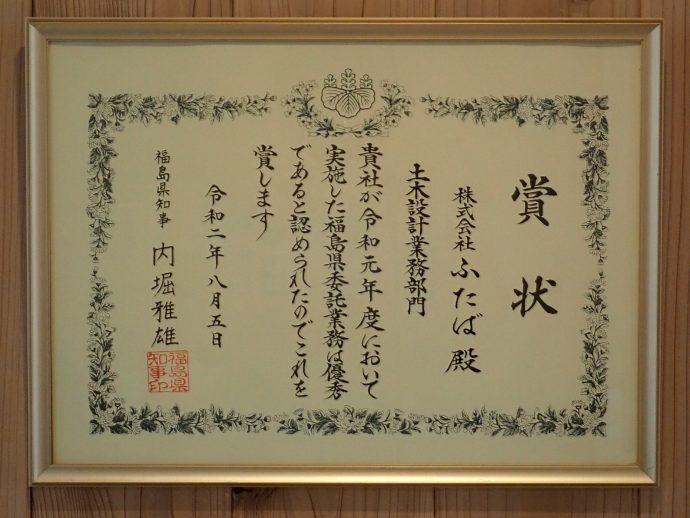 賞状
株式会社 ふたば 殿
土木設計業務部門
貴社が令和元年度において
実施した福島県委託業務は優秀
であると認められたのでこれを
賞します
令和二年八月五日
福島県知事 内堀雅雄
福島県
知事印